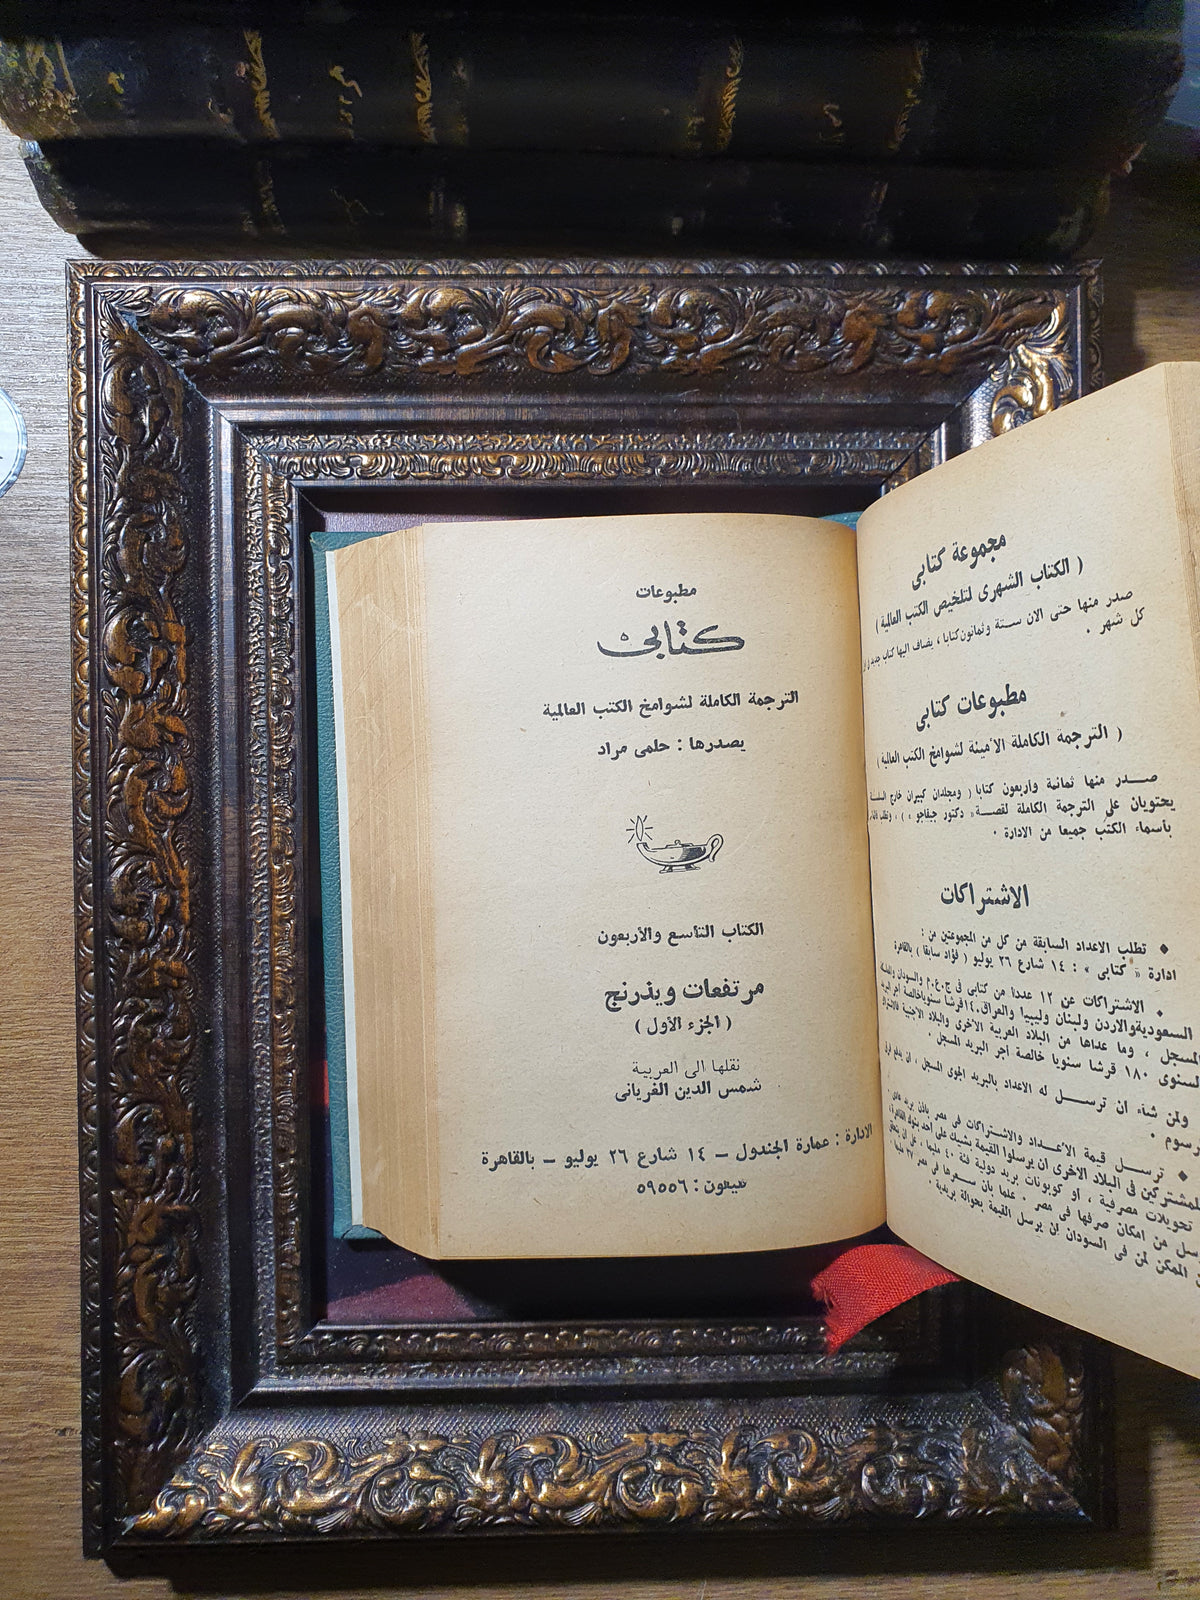 مجموعة كتابى
( الكتاب الشهرى لتلخيص الكتب العالمية )
صدر منها حتى الان ستة وثمانون كتابا ، يضاف اليها كتاب جديد
كل شهر .
مطبوعات كتابى
( الترجمة الكاملة الأمينة لشوامخ الكتب العالمية )
صدر منها ثمانية وأربعون كتابا ( ومجلدان كبيران خارج السلسلة
يحتويان على الترجمة الكاملة لقصة « دكتور جيفاجو » ) ، وتطلب
بأسماء الكتب جميعا من الادارة .
الاشتراكات
◆ تطلب الاعداد السابقة من كل من المجموعتين من :
ادارة « كتابى » : ١٤ شارع ٢٦ يوليو ( فؤاد سابقا ) بالقاهرة
◆ الاشتراكات عن ١٢ عددا من كتابى فى ج.ع.م والسودان
السعودية والاردن ولبنان وليبيا والعراق ١٤٠ قرشا سنويا خالصة اجر البريد
المسجل ، وما عداها من البلاد العربية الأخرى والبلاد الأجنبية
السنوى ١٨٠ قرشا سنويا خالصة أجر البريد المسجل .
ولمن شاء ان ترسل له الاعداد بالبريد الجوى المسجل ، ان يدفع فرق
رسوم .
◆ ترسل قيمة الأعداد والاشتراكات فى مصر باذن بريد
للمشتركين فى البلاد الاخرى ان يرسلوا القيمة بشيك على احد بنوك القاهرة ،
تحويلات مصرفية ، أو كوبونات بريد دولية فئة ٤٠ مليما ، على ان
من امكان صرفها فى مصر . علما بأن سعرها فى مصر ٢٧ مليما .
الممكن لمن فى السودان ان يرسل القيمة بحوالة بريدية .
مطبوعات
كتابى
الترجمة الكاملة لشوامخ الكتب العالمية
يصدرها : حلمى مراد
الكتاب التاسع والأربعون
مرتفعات ويذرنج
( الجزء الأول )
نقلها الى العربية
شمس الدين الغريانى
الادارة : عمارة الجندول – ١٤ شارع ٢٦ يوليو – بالقاهرة
تليفون : ٥٩٥٥٦